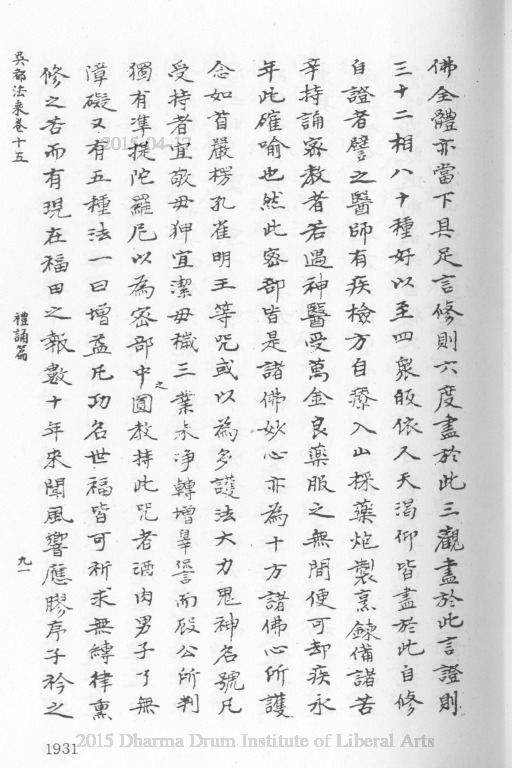 佛全體亦當下具足言修則六度盡於此三觀盡於此言證則
三十二相八十種好以至四衆皈依人天渴仰皆盡於此自修
自證者譬之醫師有疾檢方自療入山採藥炮製烹鍊備諸苦
辛持誦密教者若遇神醫受萬金良藥服之無間便可却疾永
年此確喻也然此密部皆是諸佛妙心亦為十方諸佛心所護
念如首嚴楞孔雀明王等咒或以為多護法大力鬼神名號凡
受持者宜敬毋狎宜潔毋穢三業未淨轉增辠諐而殷公所判
獨有準提陀羅尼以為密部中之圓教持此咒者酒肉男子了無
障礙又有五種法一曰增益凡功名世福皆可祈求無縳律熏
修之苦而有現在福田之報數十年來聞風響應膠序子衿之
吳都法乘卷十五
禮誦篇
九一
1931
2015-04-17
2015 Dharma Drum Institute of Liberal Arts